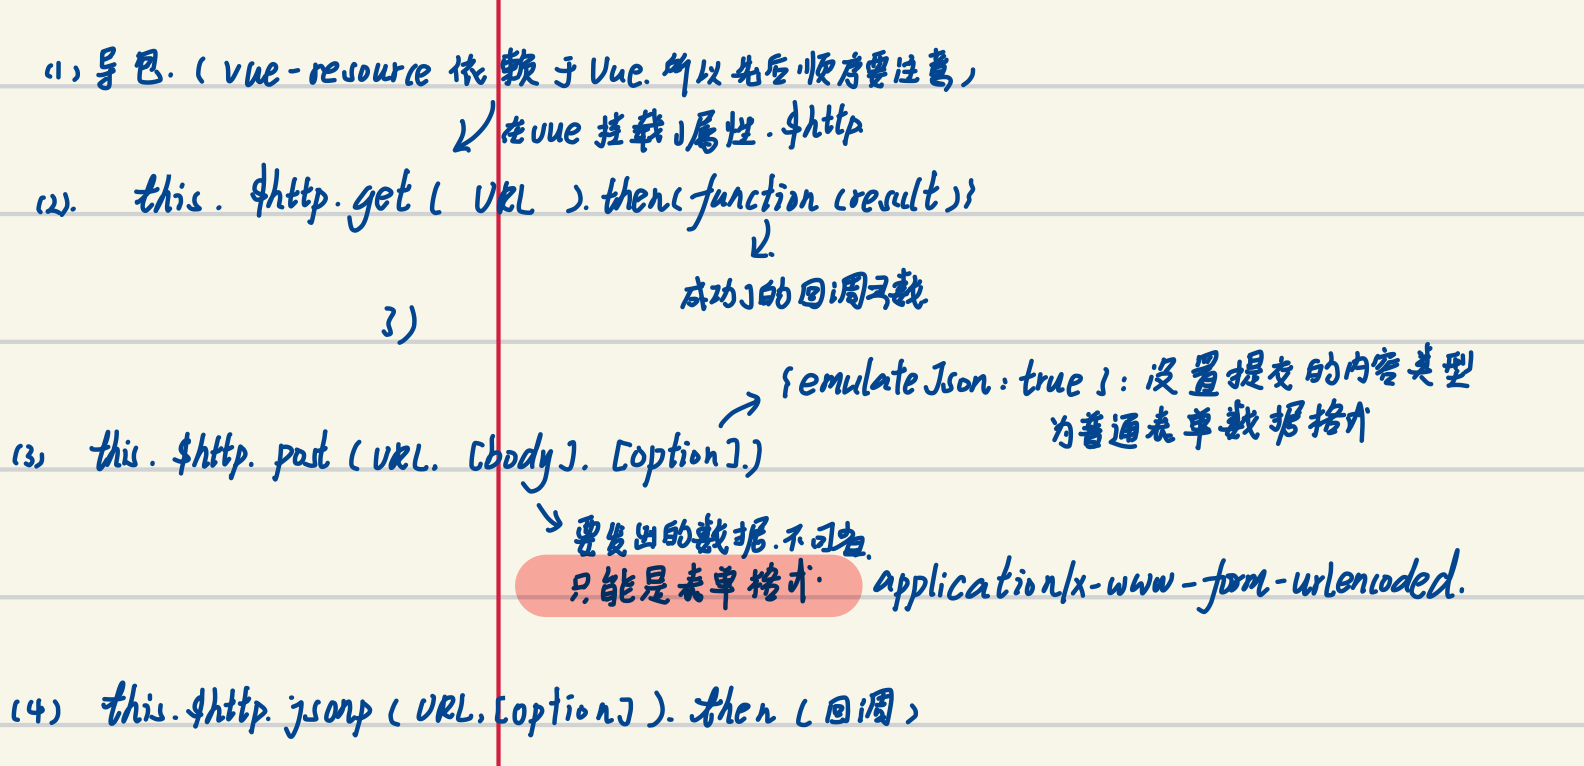 (1) 导包. ( vue-resource 依赖于 Vue. 所以先后顺序要注意)
在vue 挂载了属性. $http
(2). this. $http. get ( URL ). then( function (result) {
成功了的回调函数
})
{emulateJson: true }: 设置提交的内容类型
为普通表单数据格式
(3) this. $http. post ( URL. [body]. [option].)
要发出的数据. 不可省.
只能是表单格式. application/x-www-form-urlencoded.
(4) this. $http. jsonp ( URL, [option] ). then ( 回调 )